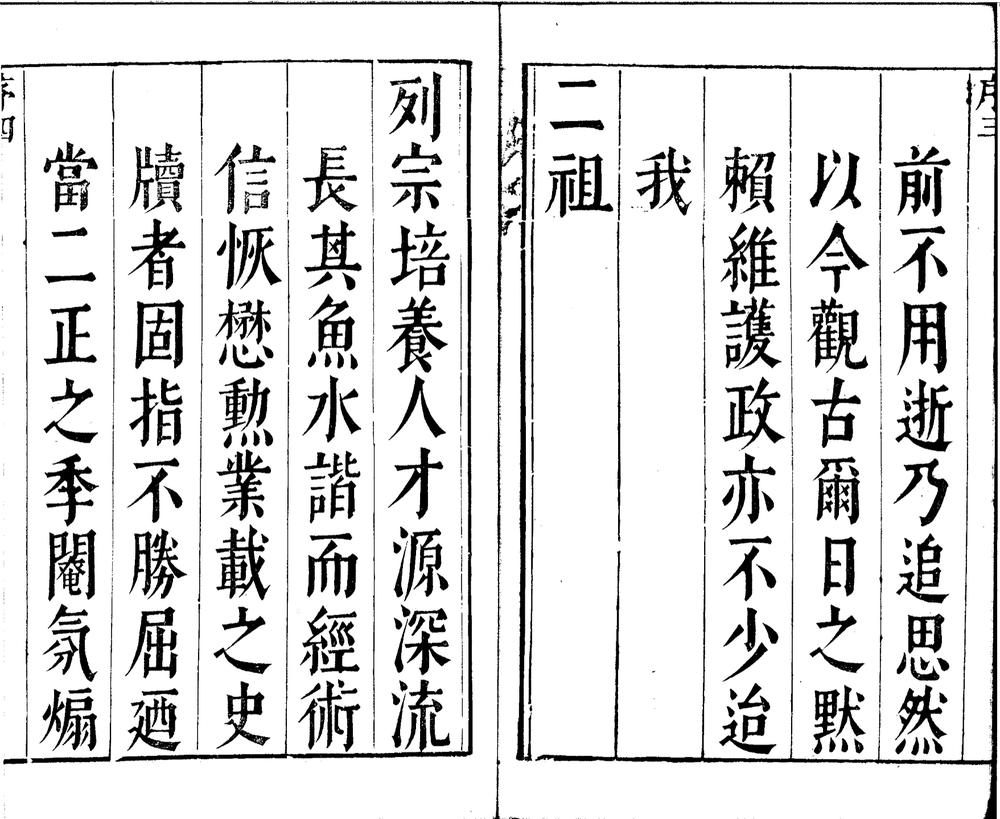 序三
前不用逝乃追思然
以今觀古爾日之默
賴維護政亦不少迨
我
二祖
列宗培養人才源深流
長其魚水諧而經術
信恢懋勲業載之史
牘者固指不勝屈廼
當二正之季閹氛煽
序四